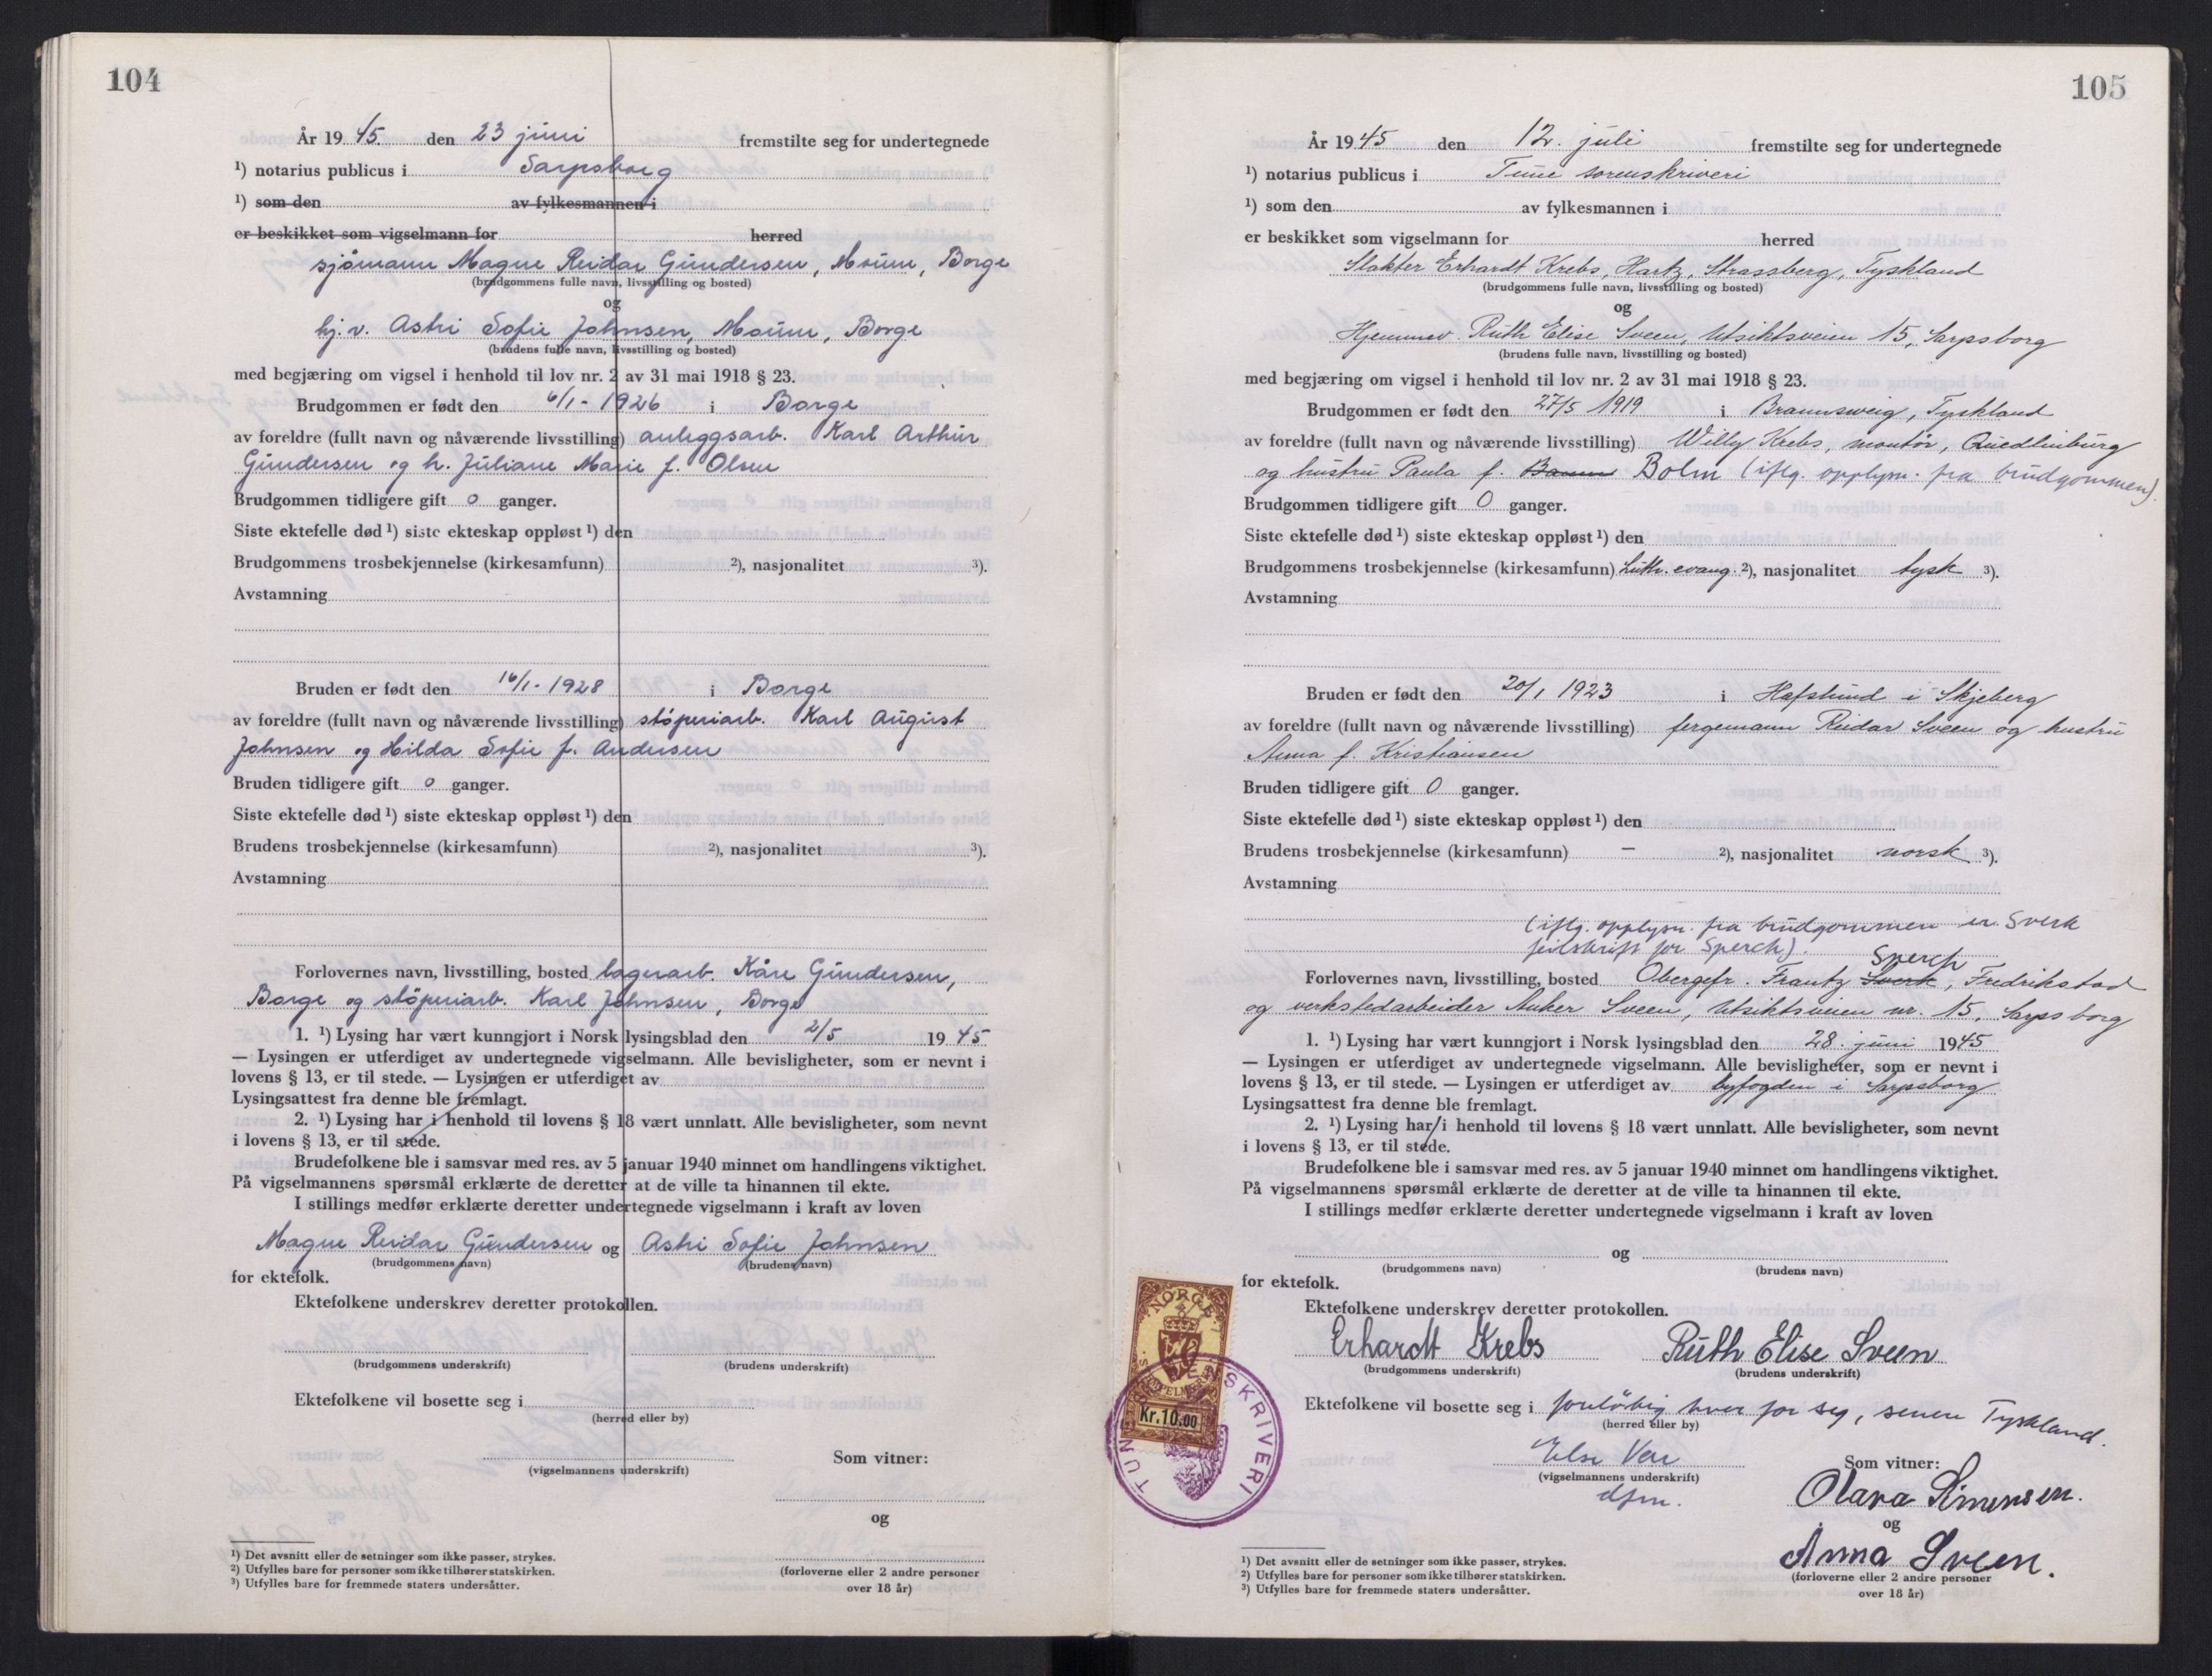 104
År 19 45. den 23 juni fremstilte seg for undertegnede
¹) notarius publicus i Sarpsborg
¹) som den av fylkesmannen i
er beskikket som vigselmann for herred
sjömann Magne Reidar Gundersen, Moum, Borge
(brudgommens fulle navn, livsstilling og bosted)
og
hj.v. Astri Sofie Johnsen, Moum, Borge
(brudens fulle navn, livsstilling og bosted)
med begjæring om vigsel i henhold til lov nr. 2 av 31 mai 1918 § 23.
Brudgommen er født den 6/1 - 1926 i Borge
av foreldre (fullt navn og nåværende livsstilling) anleggsarb. Karl Arthur
Gundersen og h. Juliane Marie f. Olsen
Brudgommen tidligere gift 0 ganger.
Siste ektefelle død ¹) siste ekteskap oppløst ¹) den
Brudgommens trosbekjennelse (kirkesamfunn) ²), nasjonalitet ³).
Avstamning
Bruden er født den 16/1 - 1928 i Borge
av foreldre (fullt navn og nåværende livsstilling) støperiarb. Karl August
Johnsen og Hilda Sofie f. Andersen
Bruden tidligere gift 0 ganger.
Siste ektefelle død ¹) siste ekteskap oppløst ¹) den
Brudens trosbekjennelse (kirkesamfunn) ²), nasjonalitet ³).
Avstamning
Forlovernes navn, livsstilling, bosted lagerarb. Kåre Gundersen,
Borge og støperiarb. Karl Johnsen, Borge
1. ¹) Lysing har vært kunngjort i Norsk lysingsblad den 2/5 19 45
— Lysingen er utferdiget av undertegnede vigselmann. Alle bevisligheter, som er nevnt i
lovens § 13, er til stede. — Lysingen er utferdiget av
Lysingsattest fra denne ble fremlagt.
2. ¹) Lysing har i henhold til lovens § 18 vært unnlatt. Alle bevisligheter, som nevnt
i lovens § 13, er til stede.
Brudefolkene ble i samsvar med res. av 5 januar 1940 minnet om handlingens viktighet.
På vigselmannens spørsmål erklærte de deretter at de ville ta hinannen til ekte.
I stillings medfør erklærte deretter undertegnede vigselmann i kraft av loven
Magne Reidar Gundersen og Astri Sofie Johnsen
(brudgommens navn) (brudens navn)
for ektefolk.
Ektefolkene underskrev deretter protokollen.
(brudgommens underskrift) (brudens underskrift)
Ektefolkene vil bosette seg i
(herred eller by)
Som vitner:
(vigselmannens underskrift)
og
¹) Det avsnitt eller de setninger som ikke passer, strykes.
²) Utfylles bare for personer som ikke tilhører statskirken.
³) Utfylles bare for fremmede staters undersåtter.
(forloverne eller 2 andre personer
over 18 år)
105
År 19 45 den 12. juli fremstilte seg for undertegnede
¹) notarius publicus i Tune sorenskriveri
¹) som den av fylkesmannen i
er beskikket som vigselmann for herred
Slakter Erhardt Krebs, Hartz, Strassberg, Tyskland
(brudgommens fulle navn, livsstilling og bosted)
og
Hjemmev. Ruth Elise Sveen, Utsiktsveien 15, Sarpsborg
(brudens fulle navn, livsstilling og bosted)
med begjæring om vigsel i henhold til lov nr. 2 av 31 mai 1918 § 23.
Brudgommen er født den 27/5 1919 i Braunsweig, Tyskland
av foreldre (fullt navn og nåværende livsstilling) Willy Krebs, montør, Quedlinburg
og hustru Paula f. Bolm (iflg. opplysn. fra brudgommen).
Brudgommen tidligere gift 0 ganger.
Siste ektefelle død ¹) siste ekteskap oppløst ¹) den
Brudgommens trosbekjennelse (kirkesamfunn) Luth. evang. ²), nasjonalitet tysk ³).
Avstamning
Bruden er født den 20/1 1923 i Hafslund i Skjeberg
av foreldre (fullt navn og nåværende livsstilling) fergemann Reidar Sveen og hustru
Anna f. Kristiansen
Bruden tidligere gift 0 ganger.
Siste ektefelle død ¹) siste ekteskap oppløst ¹) den
Brudens trosbekjennelse (kirkesamfunn) – ²), nasjonalitet norsk ³).
Avstamning
(iflg. opplysn. fra brudgommen er Sverk
feilskrift for Sperch).
Sperch
Forlovernes navn, livsstilling, bosted Obergefr. Frantz Sverk, Fredrikstad
og verkstedarbeider Anker Sveen, Utsiktsveien nr. 15, Sarpsborg
1. ¹) Lysing har vært kunngjort i Norsk lysingsblad den 28. juni 1945
— Lysingen er utferdiget av undertegnede vigselmann. Alle bevisligheter, som er nevnt i
lovens § 13, er til stede. — Lysingen er utferdiget av byfogden i Sarpsborg
Lysingsattest fra denne ble fremlagt.
2. ¹) Lysing har i henhold til lovens § 18 vært unnlatt. Alle bevisligheter, som nevnt
i lovens § 13, er til stede.
Brudefolkene ble i samsvar med res. av 5 januar 1940 minnet om handlingens viktighet.
På vigselmannens spørsmål erklærte de deretter at de ville ta hinannen til ekte.
I stillings medfør erklærte deretter undertegnede vigselmann i kraft av loven
og
(brudgommens navn) (brudens navn)
for ektefolk.
Ektefolkene underskrev deretter protokollen.
Erhardt Krebs Ruth Elise Sveen
(brudgommens underskrift) (brudens underskrift)
Ektefolkene vil bosette seg i foreløbig hver for seg, senere Tyskland.
(herred eller by)
Else
Som vitner:
(vigselmannens underskrift)
dfm.
Olava Simensen.
og
Anna Sveen.
(forloverne eller 2 andre personer
over 18 år)
¹) Det avsnitt eller de setninger som ikke passer, strykes.
²) Utfylles bare for personer som ikke tilhører statskirken.
³) Utfylles bare for fremmede staters undersåtter.
NORGE
Kr.10.00
TUNE SORENSKRIVERI